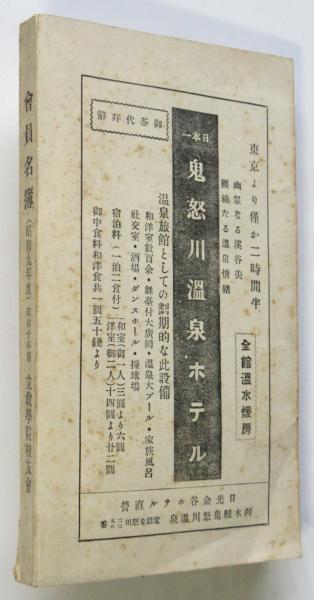 會員名簿(昭和九年度)昭和十年用 立教學院校友會
東京より僅か二時間半
幽翠なる溪谷美
纒綿たる温泉情緒
全館溫水煖房
日本一
鬼怒川溫泉ホテル
御茶代拜辭
温泉旅館としての劃期的な此設備
和洋室數百余・舞臺付大廣間・溫泉大プール・家族風呂
社交室・酒場・ダンスホール・撞球場
宿泊料(一泊二食付)
和室(御一人)三圓より六圓
洋室(御二人)十四圓より廿二圓
御中食料和洋食共一圓五十錢より
日光金谷ホテル直營
栃木縣鬼怒川溫泉 電話鬼怒川
番